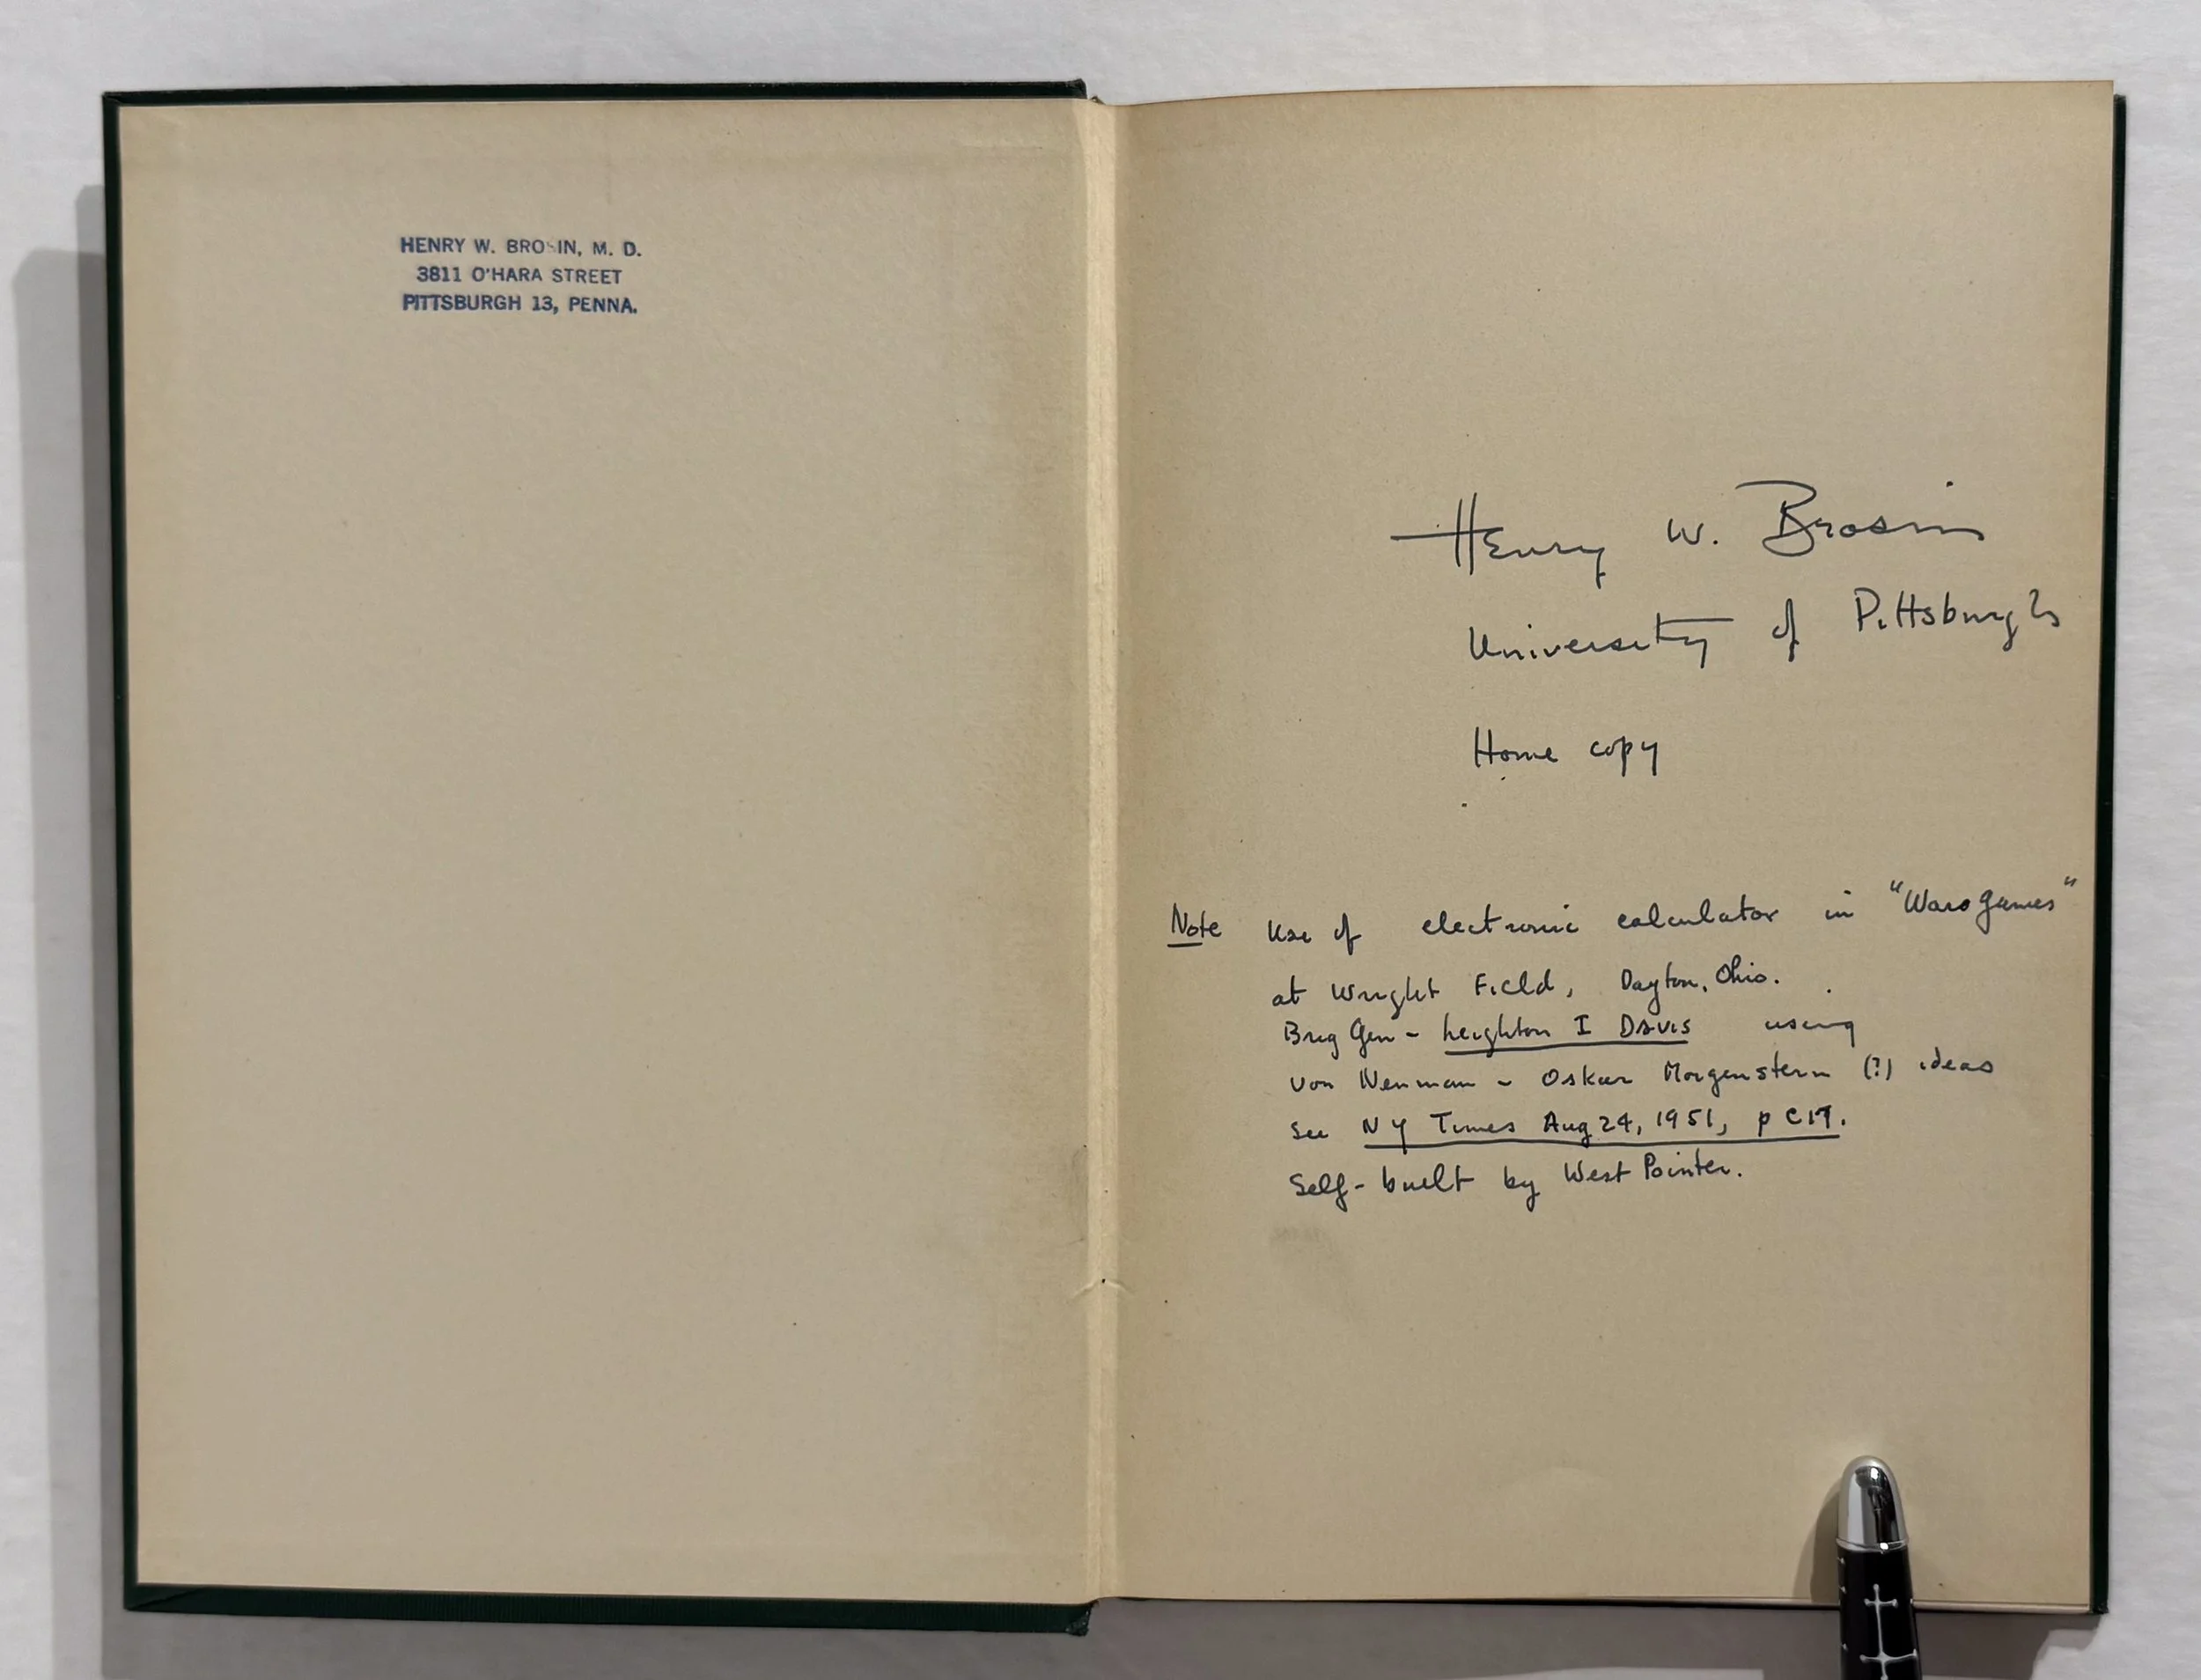 HENRY W. BROSIN, M. D.
3811 O'HARA STREET
PITTSBURGH 13, PENNA.
Henry W. Brosin
University of Pittsburgh
Home copy
Note Use of electronic calculator in "War Games"
at Wright Field, Dayton, Ohio.
Brig Gen - Leighton I Davis using
von Neuman - Oskar Morgenstern (?) ideas
See NY Times Aug 24, 1951, p C17.
Self-built by West Pointer.